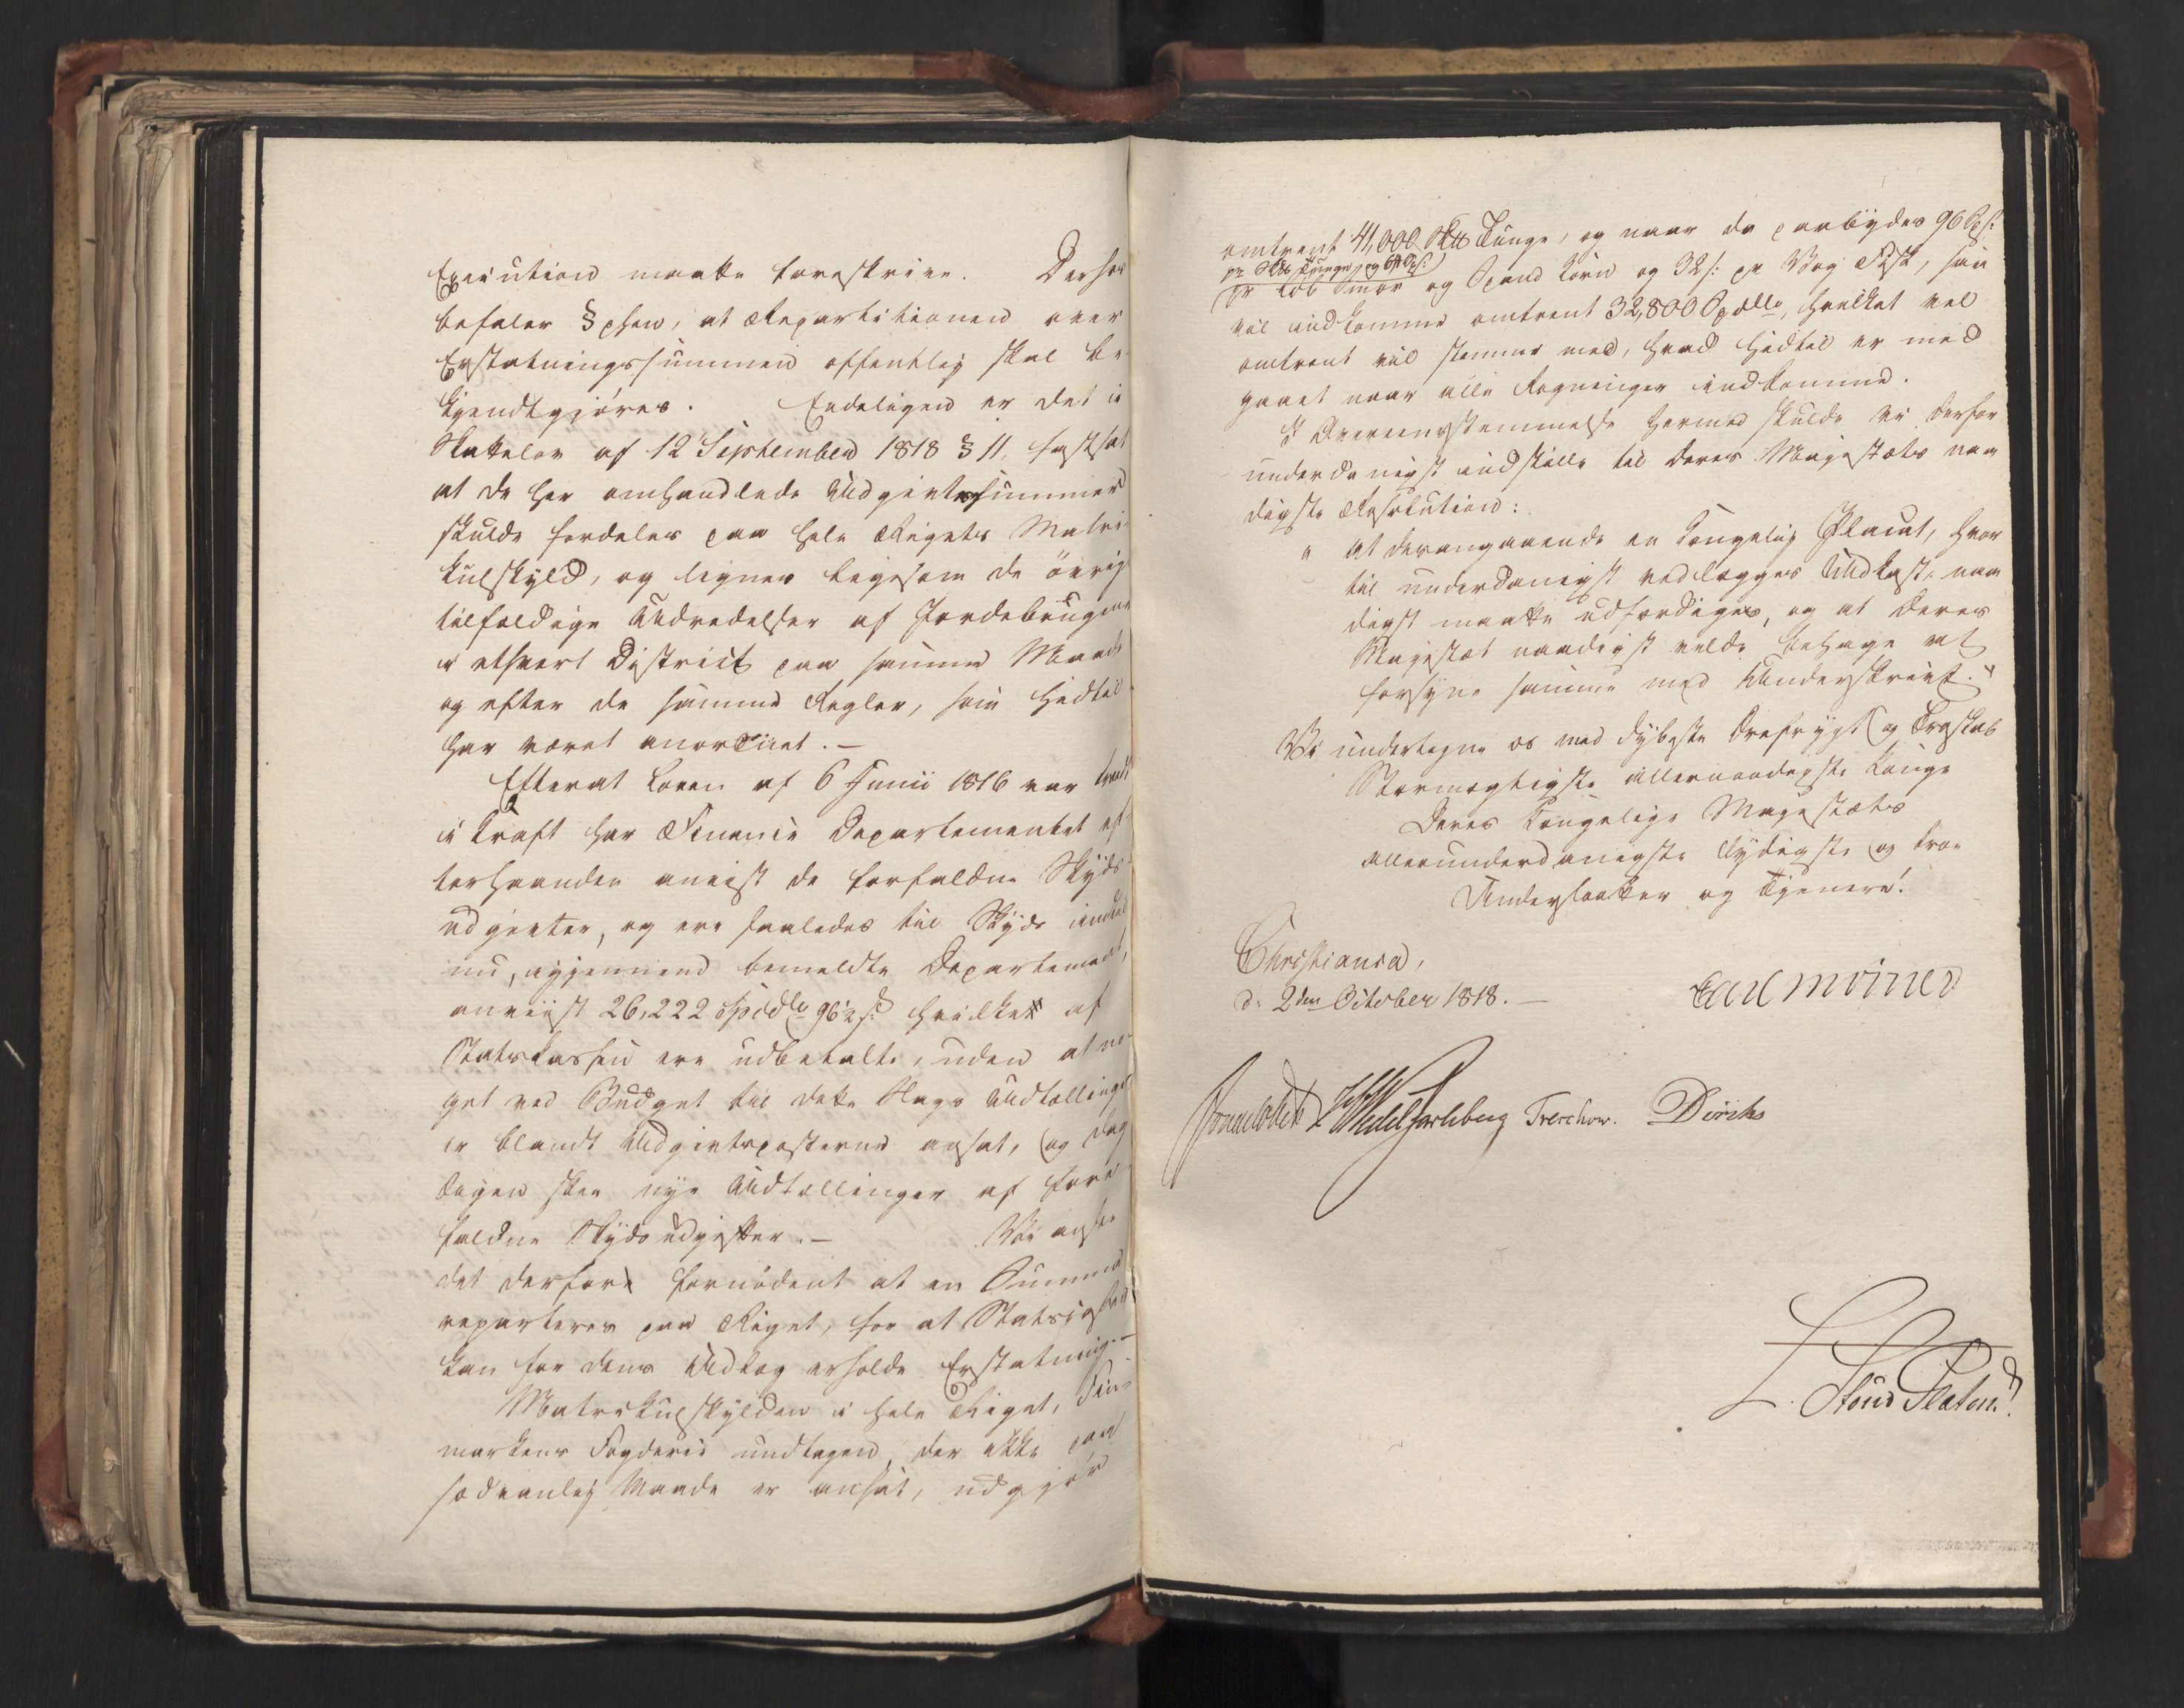 Execution maatte foreskrive. Derhos
befaler §phen, at Repartitionen over
Erstatningssummen offentlig skal be-
kjendtgjöres. Endeligen er det i
Skattelov af 12 September 1818 § 11 fastsat
at de her omhandlede Udgivtssummer
skulde fordeles paa hele Rigets Matri-
kulskyld, og lignes ligesom de övrige
tilfældige Udredelser af Jordebrugene
i ethvert District paa samme Maade
og efter de samme Regler, som hidtil
har været anordnet. —
Efterat Loven af 6 Junii 1816 var traadt
i Kraft har Finance Departementet ef-
terhaanden anvist de forfaldne Skyds-
udgivter, og ere saaledes til Skyds indtil
nu, igjennem bemeldte Departement,
anviist 26,222 Spdlr 96½ s. hvilket af
Statskassen ere udbetalte, uden at no-
get ved Budget til dette Slags Udtællinger
er blandt Udgivtsposterne ansat, og dag-
ligen skee nye Udtællinger af fore-
faldne Skydsudgifter. — Vi ansee
det derfore fornödent at en Summa
reparteres paa Riget, for at Statskassen
kan for dens Udlæg erholde Erstatning. —
Matrikulskylden i hele Riget, Fin-
markens Fogderie undtagen, der ikke paa
sædvanlig Maade er ansat, udgjör
omtrent 41,000 Skd Tunge, og naar da paabydes 96 s.
pr Skd Tunge og 64 s.
pr Löb Smör og Spand Korn og 32 s. pr Vog Fisk, saa
vil indkomme omtrent 32,800 Spdlr, hvilket vel
omtrent vil stemme med, hvad hidtil er med-
gaaet naar alle Regninger indkomme.
I Overeensstemmelse hermed skulde vi derfor
underdanigst indstille til Deres Majestæts naa-
digste Resolution:
" At desangaaende en Kongelig Placat, hvor-
til underdanigst vedlægges Udkast, naa-
digst maatte udfærdiges, og at Deres
Majestæt naadigst vilde behage at
forsyne samme med Underskrivt."
Vi undertegne os med dybeste Ærefrygt og Troskab
Stormægtigste Allernaadigste Konge
Deres Kongelige Majestæts
allerunderdanigste lydigste og troe
Undersaatter og Tjenere!
Christiania,
d: 2den October 1818. —
Carl Mörner
Sommerhielm HWedel Jarlsberg Treschow. Diriks